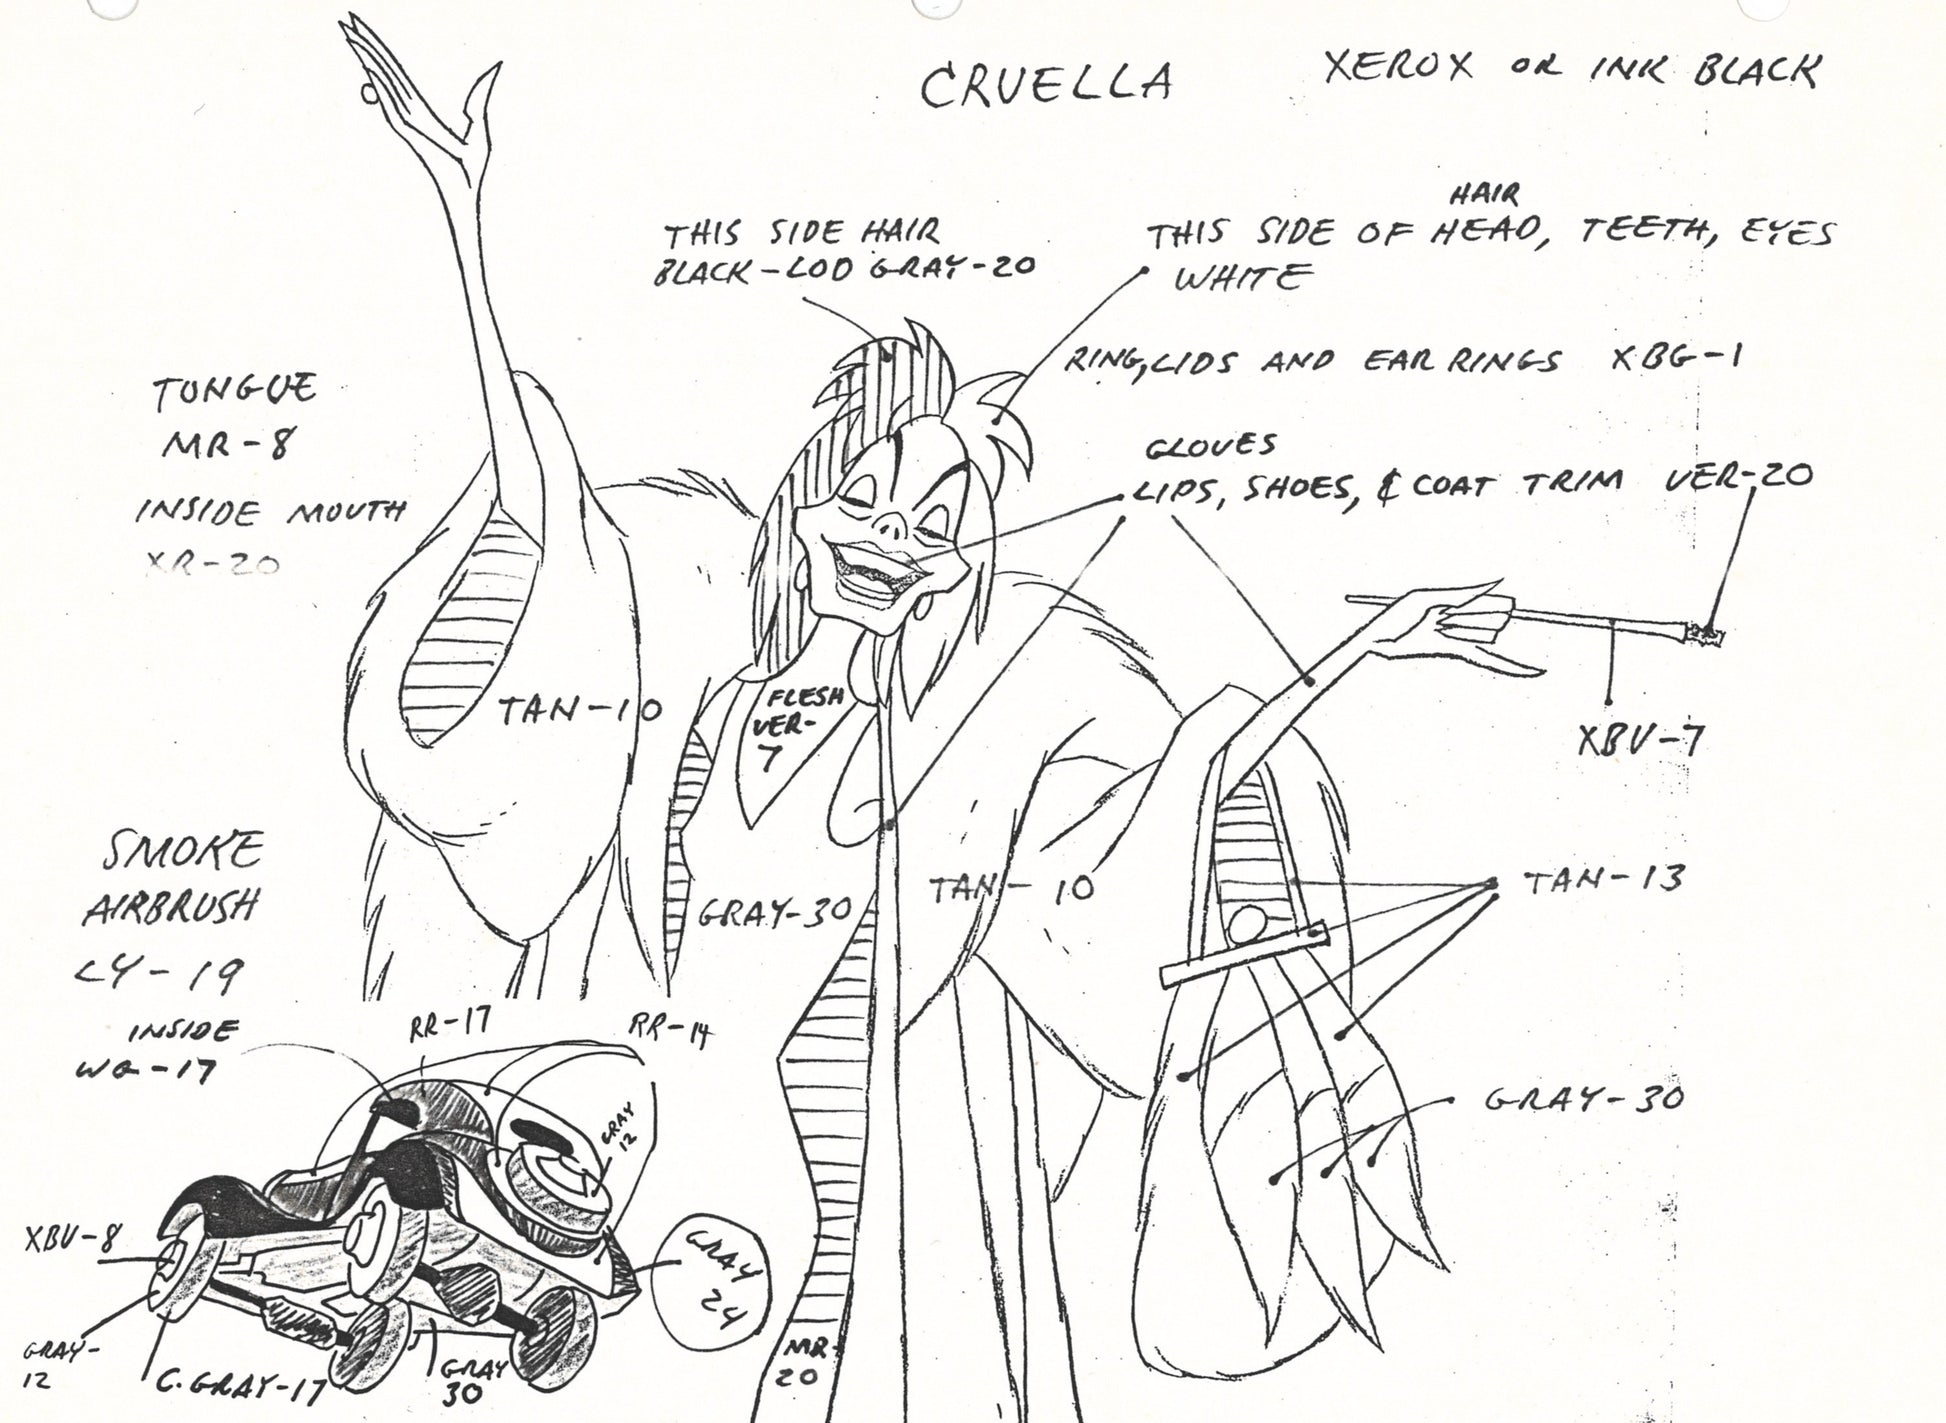 CRUELLA
XEROX OR INK BLACK
THIS SIDE HAIR
BLACK-LOD GRAY-20
HAIR
THIS SIDE OF HEAD, TEETH, EYES
WHITE
RING, LIDS AND EAR RINGS XBG-1
TONGUE
MR-8
INSIDE MOUTH
XR-20
GLOVES
LIPS, SHOES, & COAT TRIM VER-20
TAN-10
FLESH
VER-
7
XBV-7
SMOKE
AIRBRUSH
LY-19
GRAY-30
TAN-10
TAN-13
INSIDE
WG-17
RR-17
RR-14
GRAY
12
GRAY-30
XBV-8
GRAY
24
GRAY-
12
C.GRAY-17
GRAY
30
MR-
20